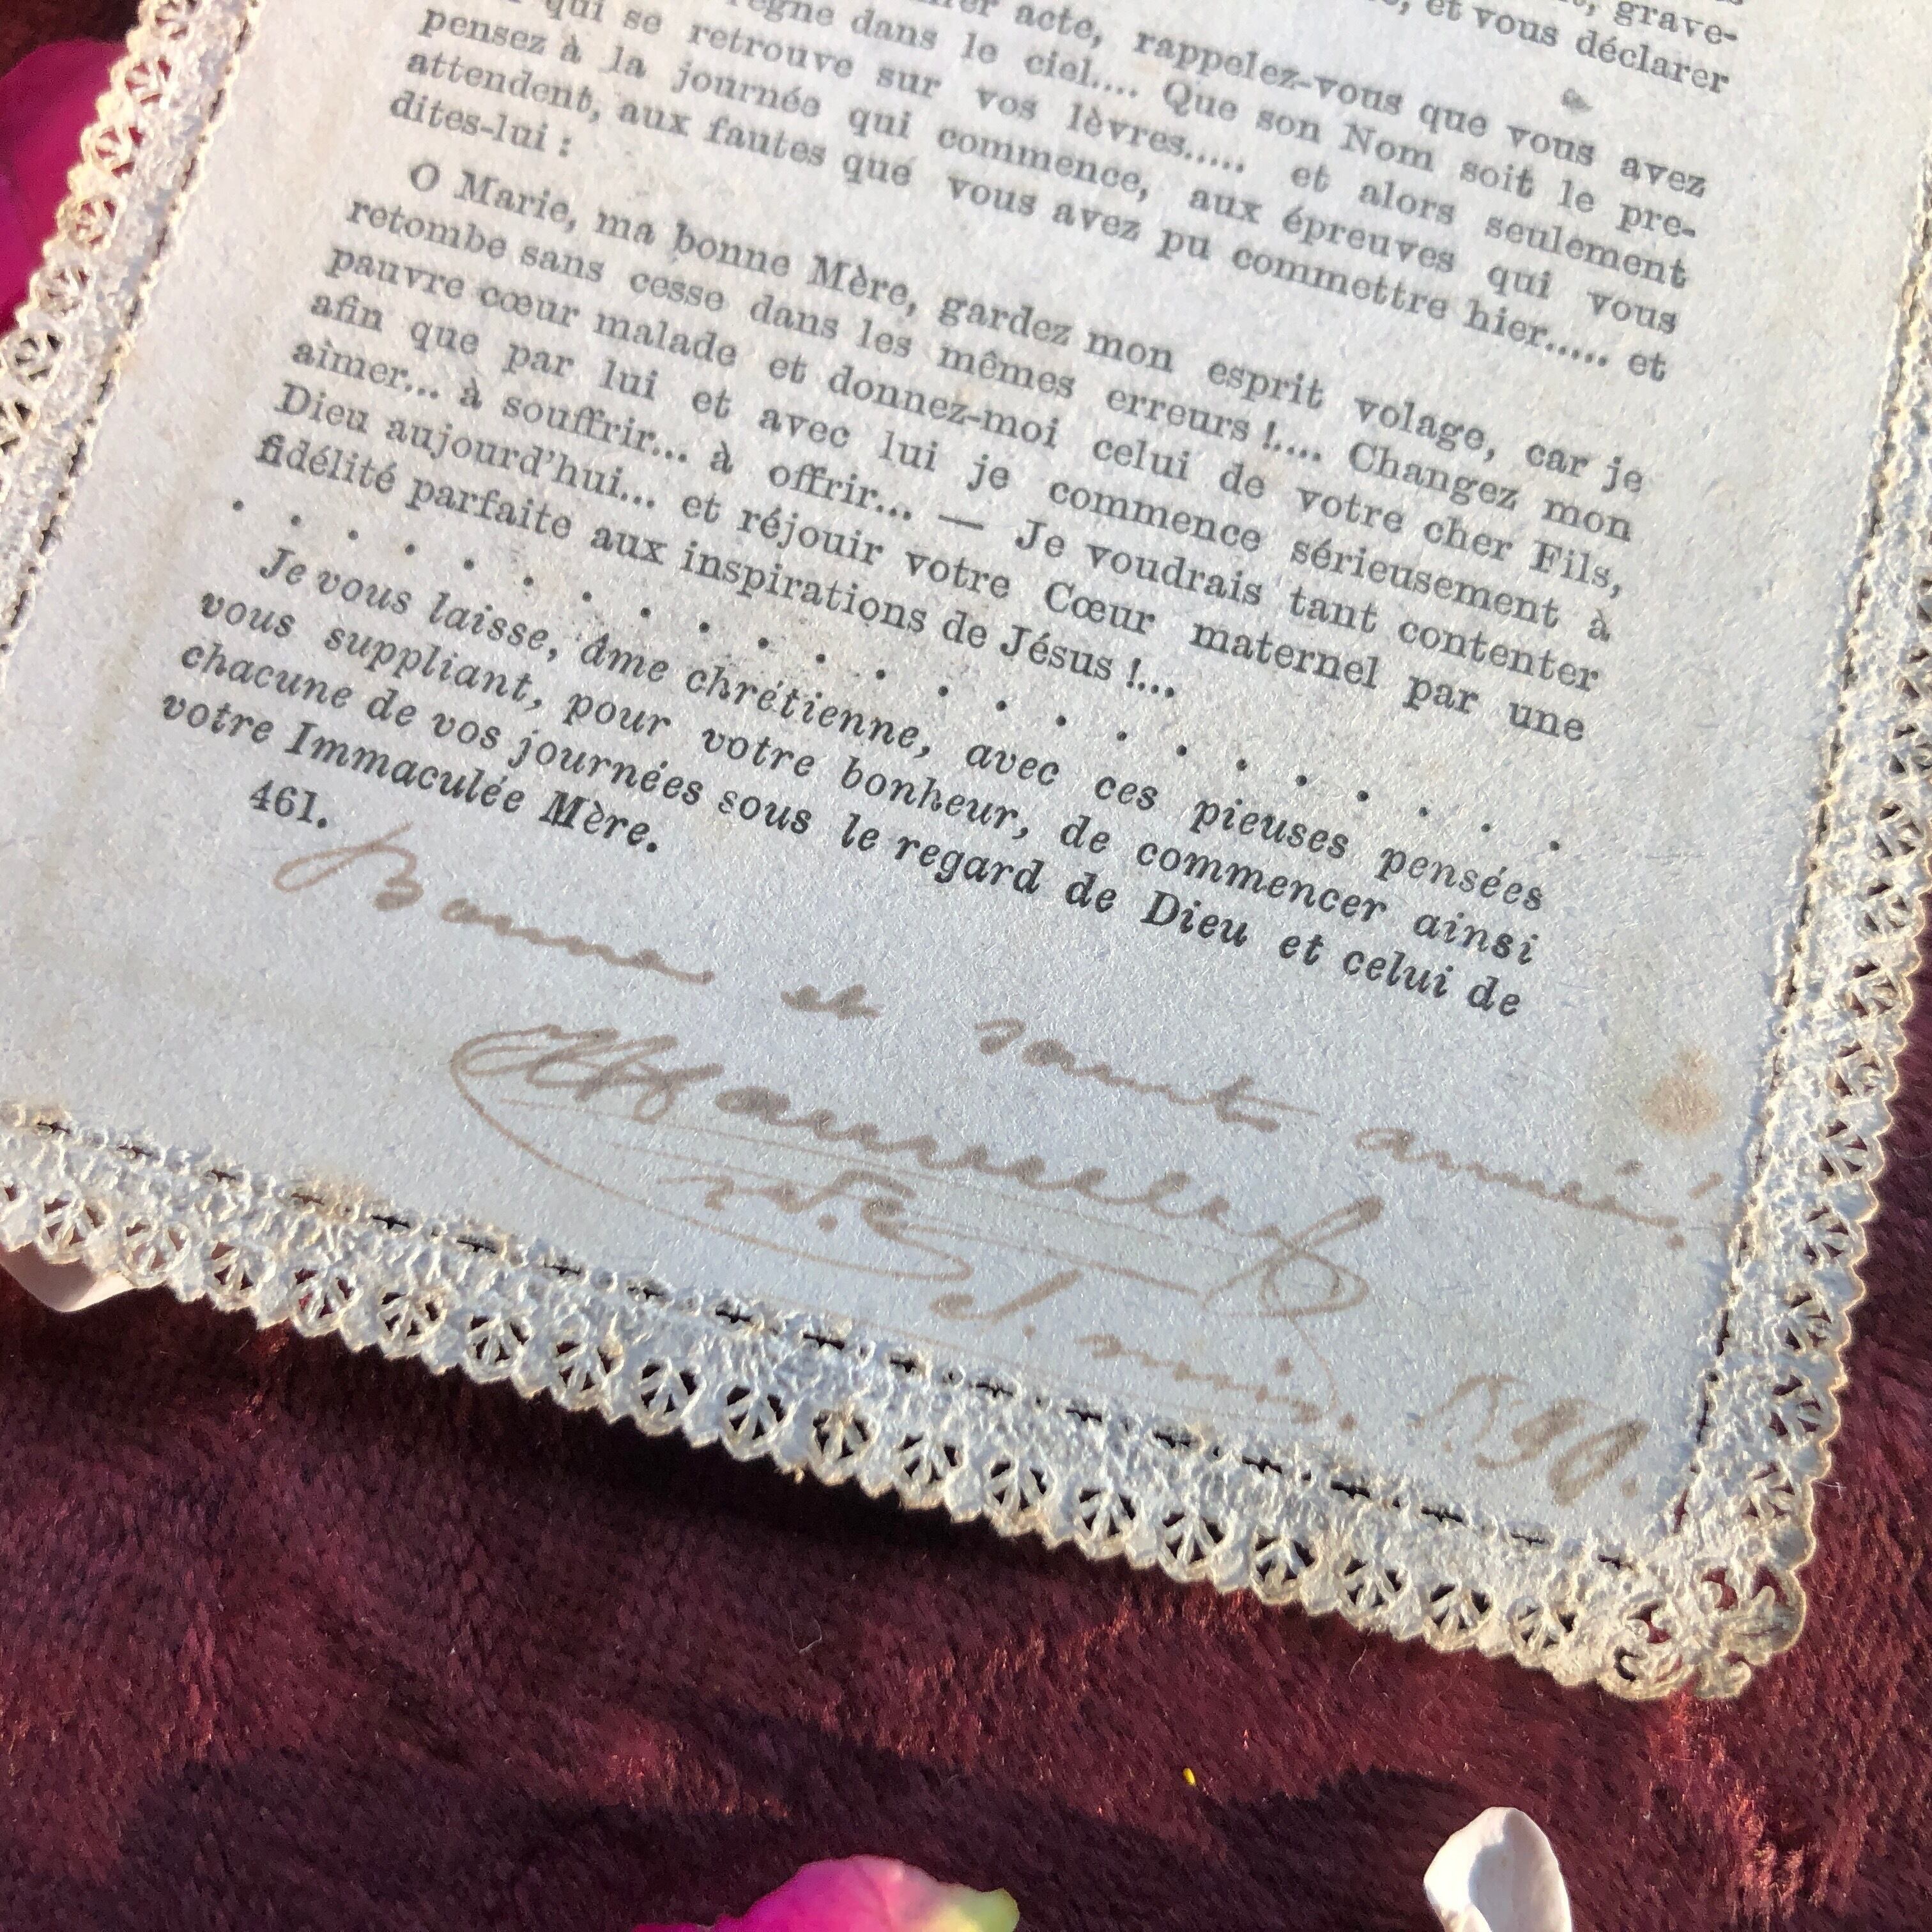 t, grave-
, et vous déclarer
acte, rappelez-vous que vous avez
règne dans le ciel.... Que son Nom soit le pre-
qui se retrouve sur vos lèvres..... et alors seulement
pensez à la journée qui commence, aux épreuves qui vous
attendent, aux fautes que vous avez pu commettre hier..... et
dites-lui :
O Marie, ma bonne Mère, gardez mon esprit volage, car je
retombe sans cesse dans les mêmes erreurs !.... Changez mon
pauvre cœur malade et donnez-moi celui de votre cher Fils,
afin que par lui et avec lui je commence sérieusement à
aimer... à souffrir... à offrir... — Je voudrais tant contenter
Dieu aujourd'hui... et réjouir votre Cœur maternel par une
fidélité parfaite aux inspirations de Jésus !...
. . . . . . . . . . . . . . . . . . . . . . . .
Je vous laisse, âme chrétienne, avec ces pieuses pensées
vous suppliant, pour votre bonheur, de commencer ainsi
chacune de vos journées sous le regard de Dieu et celui de
votre Immaculée Mère.
461.
Bonne et sainte année!
1890.